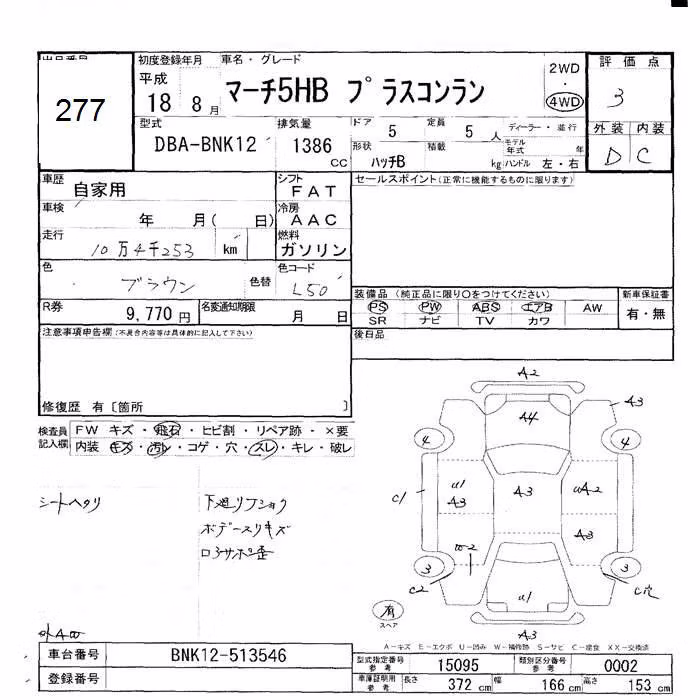 出品番号
277
初度登録年月
平成
18 8月
車名・グレード
マーチ5HB プラスコンラン
2WD
・
4WD
評価点
3
型式
DBA-BNK12
排気量
1386
CC
ドア
5
定員
5 人
形状
ハッチB
積載
kg
ディーラー・並行
モデル年式
年
ハンドル 左・右
外装 内装
D C
車歴
自家用
シフト
FAT
車検
年 月( 日)
冷房
AAC
走行
10万4千253 km
燃料
ガソリン
色
ブラウン
色替
色コード
L50
R券
9,770 円
名変通知期限
月 日
セールスポイント(正常に機能するものに限ります)
装備品 (純正品に限り○をつけてください)
PS PW ABS エアB AW
SR ナビ TV カワ
新車保証書
有・無
後日品
注意事項申告欄(不具合内容等は具体的に記入して下さい)
修復歴 有〔箇所 〕
検査員
記入欄
FW キズ・飛石・ヒビ割・リペア跡・×要
内装 キズ・汚れ・コゲ・穴・スレ・キレ・破レ
シートヘタリ
下廻りフショク
ボデースリキズ
ロアサポ歪
A2
A4
A3
4
4
U1
A3
A3
UA2
C1
A3
W2
3
3
C2
C穴
U1
有
スペア
A3
A－キズ E－エクボ U－凹み W－補修跡 S－サビ C－腐食 XX－交換済
車台番号
BNK12-513546
登録番号
型式指定番号
参考
15095
類別区分番号
参考
0002
車庫証明用
参考
長さ 372 cm
幅 166 cm
高さ 153 cm